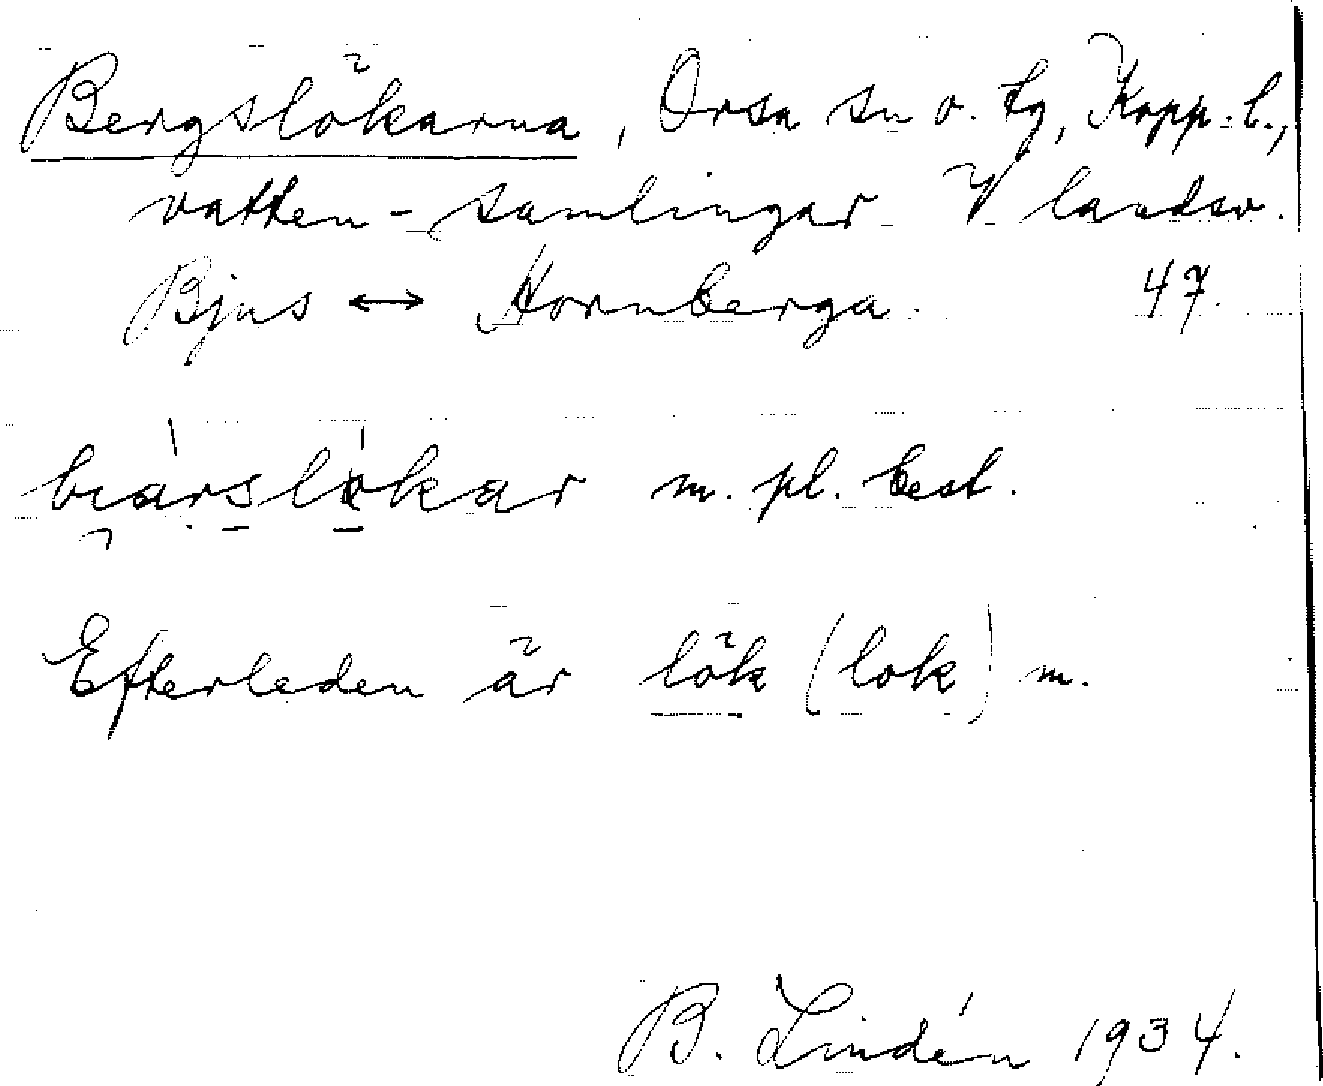 Bergslökarna, Orsa sn o. tg, Kopp. l.,
vatten-samlingar V landsv.
Bjus ↔ Hornberga. 47.
m. pl. best.
Efterleden är lök (lok) m.
B. Lindén 1934.